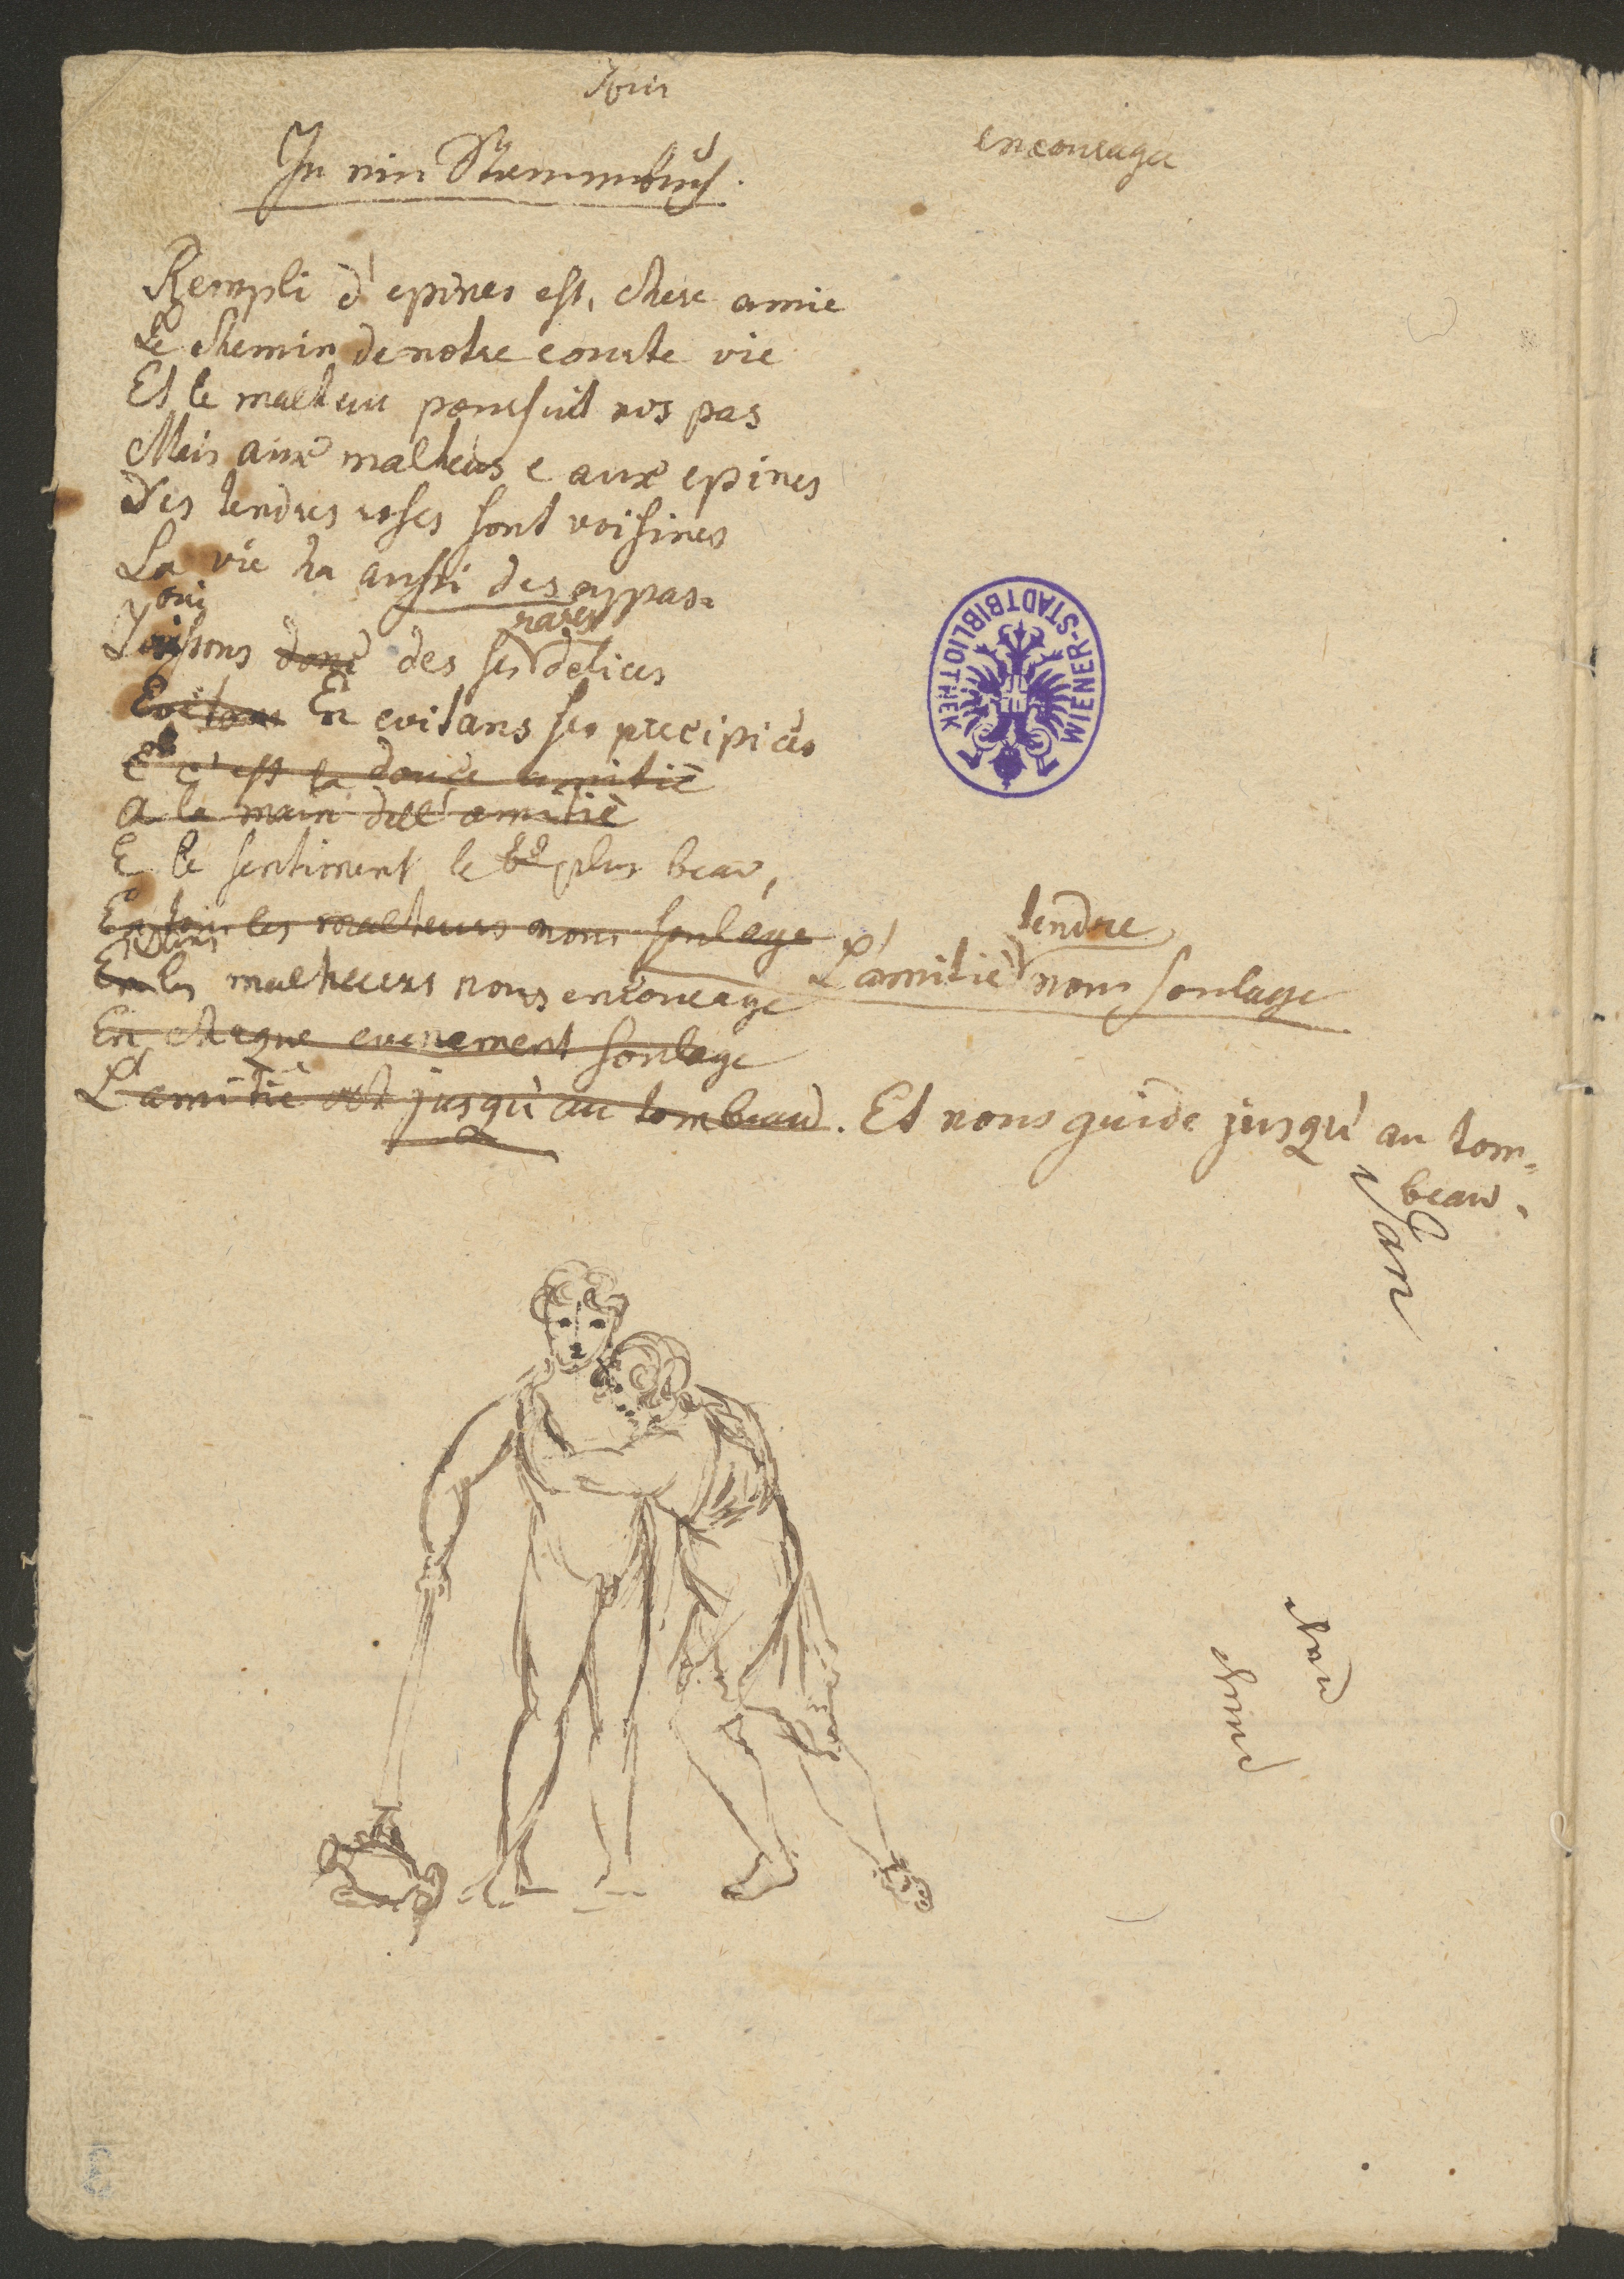 encourage
In ein Stammbuch.
Rempli d'epines est, chere amie
Le chemin de notre courte vie
Et le malheur poursuit nos pas
Mais aux malheurs e aux epines
Des tendres roses sont voisines
La vie ha aussi des appas.
oui
rares
Jouissons donc des ses delices
Evitons En evitans ses precipices
E c'est la douce amitiè
a la main dell'amitiè
E le sentiment le plus beau,
En tous les malheurs nous soulage
tendre
L'amitiè nous soulage
En les malheurs nous encourage
En chaque evenement soulage
L'amitiè et jusqu'au tombeau. Et nous guide jusqu'au tom=
beau.
WIENER-STADTBIBLIOTHEK